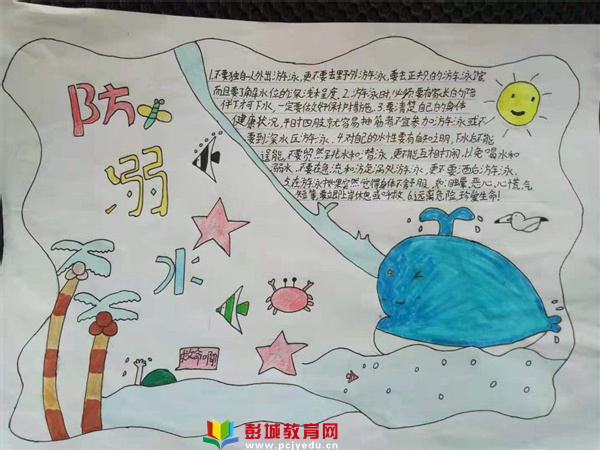 防
溺
水
1.不要独自人外出游泳,更不要去野外游泳,要去正规的游泳馆
而且要了解水位的深浅程度.2.游泳时,必须要有家长的陪
伴才可下水,一定要做好保护措施.3.要清楚自己的身体
健康状况,平时四肢就容易抽筋者不宜参加游泳或不
要到深水区游泳.4.对自己的水性要有自知之明,下水后不能
逞能,不要贸然跳水和潜泳,更不能互相打闹,以免喝水和
溺水,不要在急流和漩涡处游泳,更不要酒后游泳,
5.在游泳中如果突然觉得身体不舒服,如:眩晕,恶心,心慌,气
短等,要立即上岸休息或呼救 6.远离危险,珍爱生命!
救命啊
彭城教育网
www.pcjyedu.cn